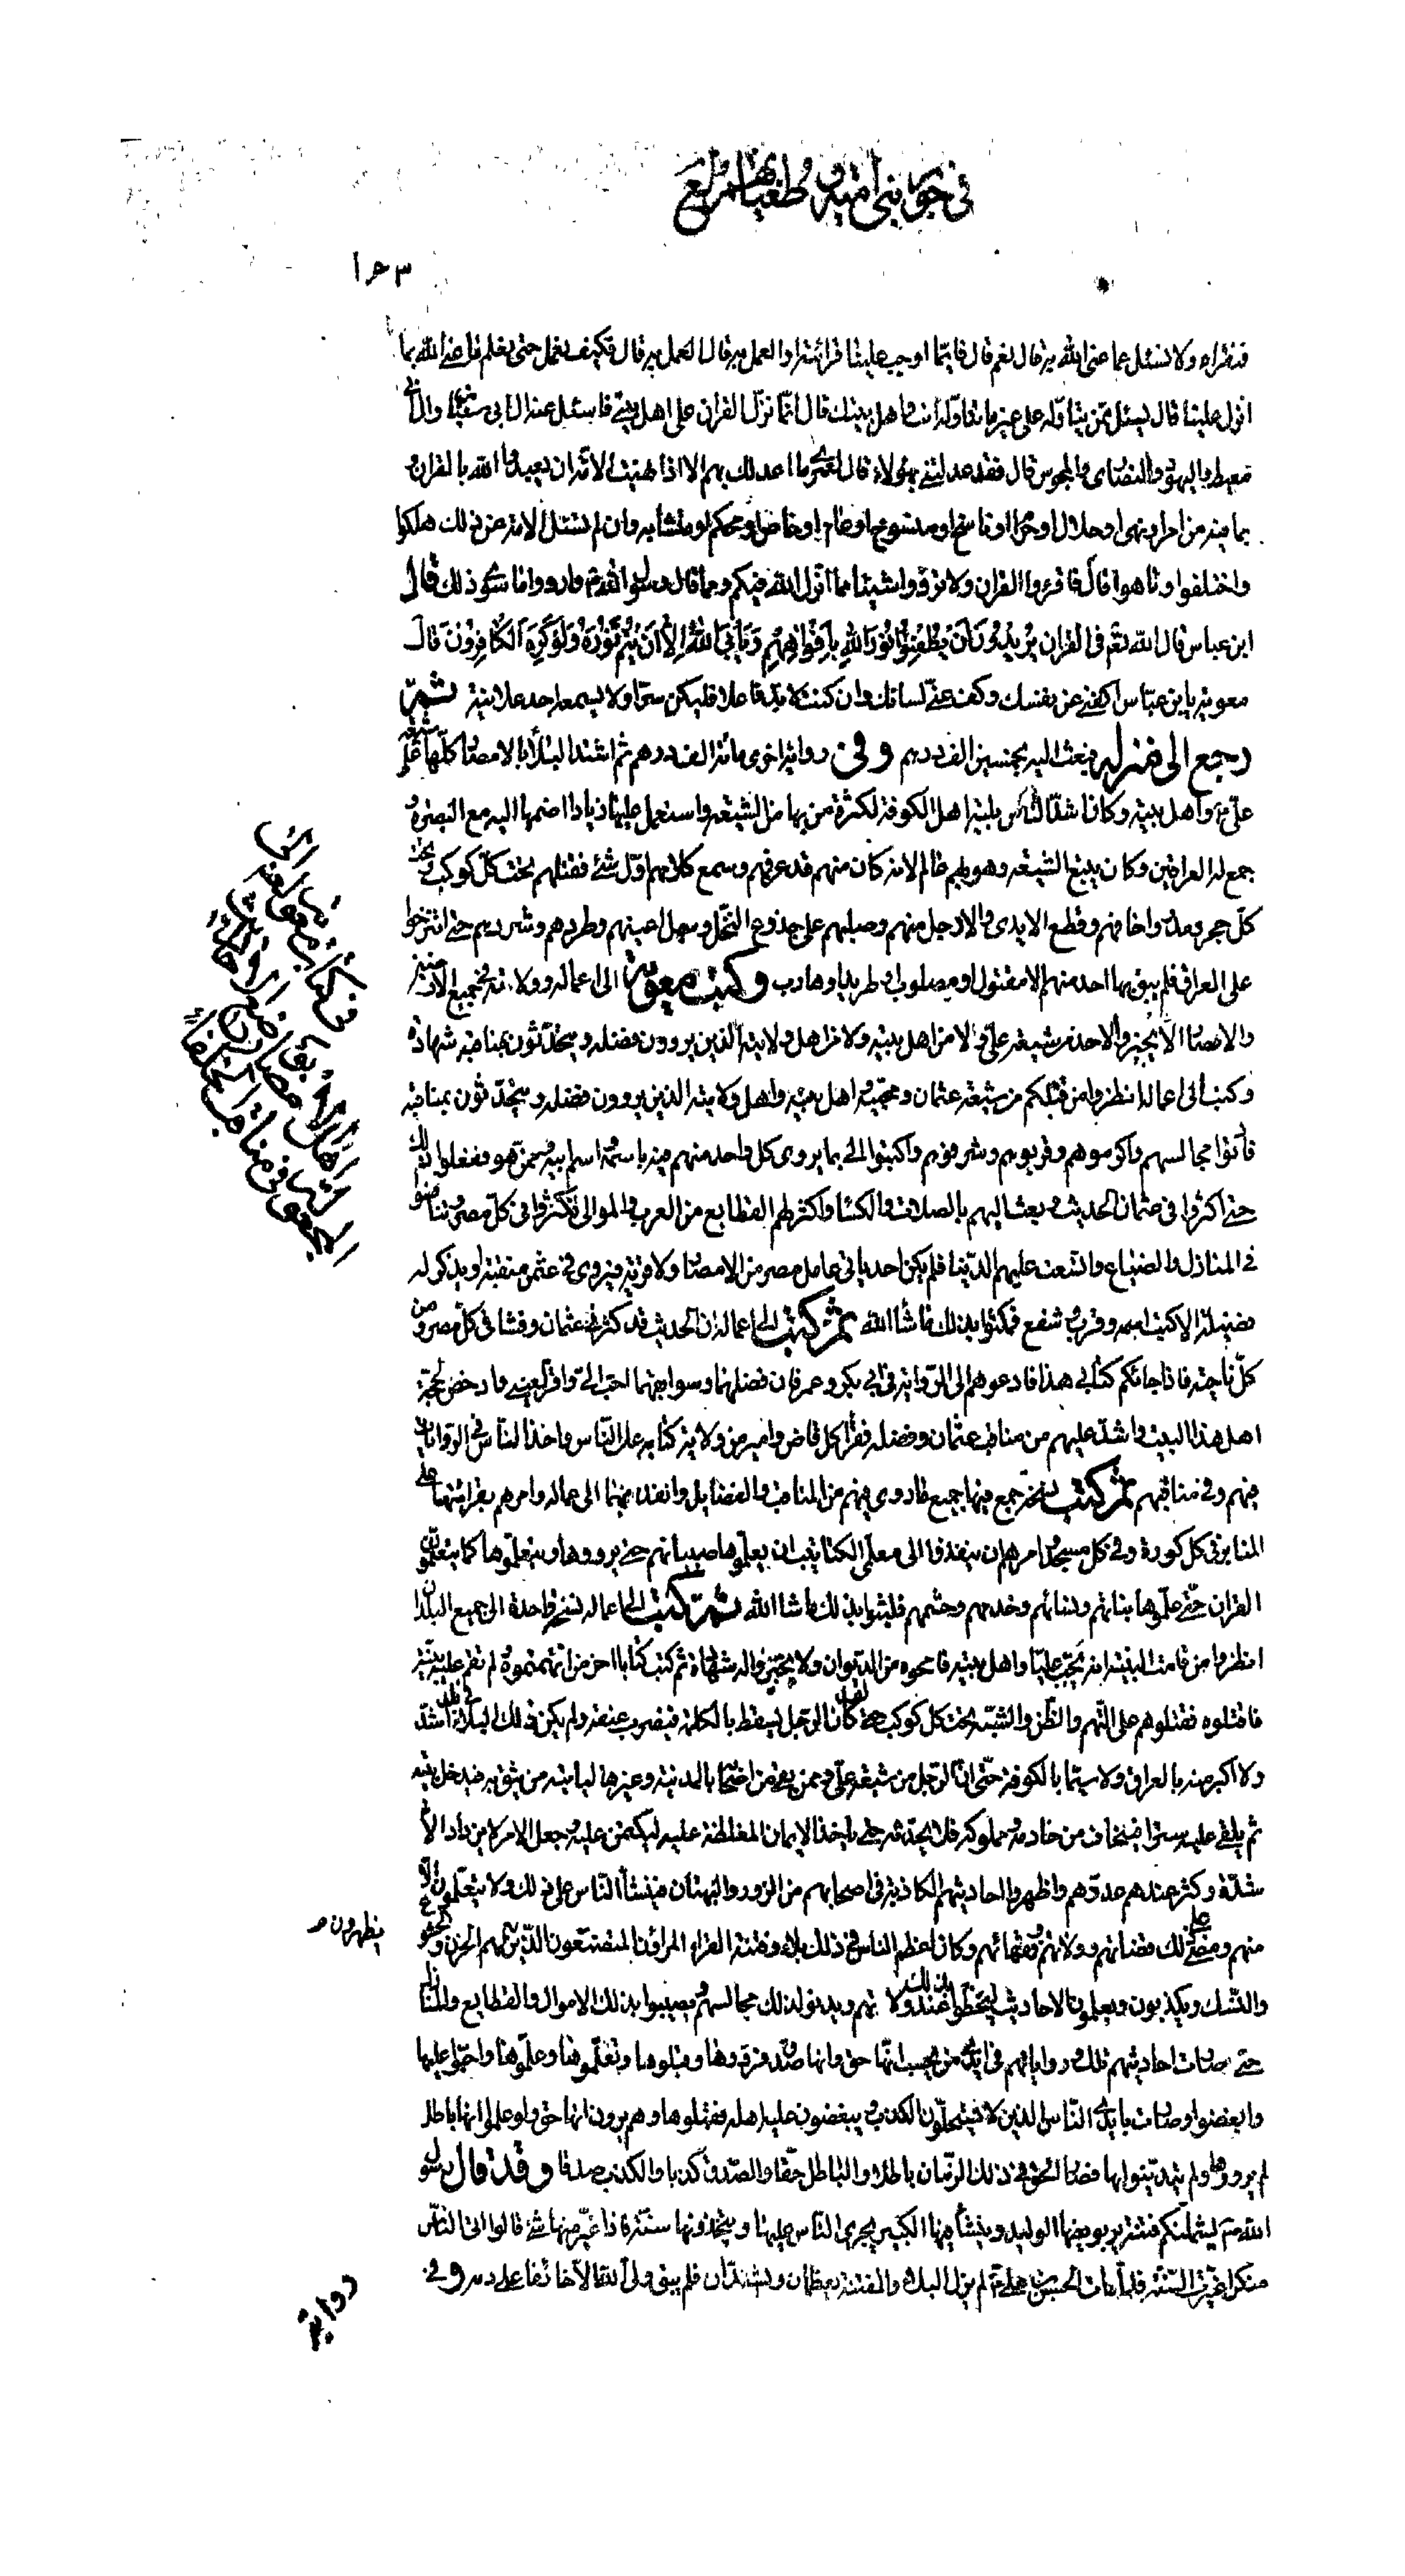 في جور بني أمية وطغيانهم
١٠٣
فنقراه ولا نسئل عما عنى الله به قال نعم قال فايّما اوجب علينا قرائته او العمل به قال العمل به قال فكيف نعمل حتى نعلم ما عنى الله بما
انزل علينا قال يسئل عمّن يتاوّله على غير ما تتاوّله انت واهل بيتك قال انّما نزّل القران على اهل بيتي فاسئل عنه ال ابي سفيان وال ابي
معيط واليهود والنصارى والمجوس قال فقد عدلتني بهؤلاء قال لعمري ما اعدلك بهم الا اذا نهيت الامّة ان يعبدوا الله بالقران و
بما فيه من امر او نهى او حلال او حرام او ناسخ او منسوخ او عام او خاص او محكم او متشابه وان لم تسئل الامة عن ذلك هلكوا
واختلفوا وتاهوا قال فاقرءوا القران ولا ترووا شيئا مما انزل الله فيكم ومما قال رسول الله ص وارووا ما سوى ذلك قال
ابن عباس قال الله تعم في القران يُرِيدُونَ اَنْ يُطْفِئُوا نُورَ اللهِ بِاَفْوَاهِهِمْ وَيَأْبَى اللهُ اِلاَّ اَنْ يُتِمَّ نُورَهُ وَلَوْ كَرِهَ الْكَافِرُونَ قال
معوية يابن عباس اكفني عن نفسك وكف عنّي لسانك وان كنت لابد فاعلا فليكن سرّا ولا يسمعه احد علانية ثمّ
رجع الى منزله فبعث اليه بخمسين الف درهم وفي رواية اخرى مائة الف درهم ثم اشتد البلاء بالامصار كلّها على شيعة
عليّ ع واهل بيته وكان اشدّ النّاس بلية اهل الكوفة لكثرة من بها من الشيعة واستعمل عليها زيادا ضمها اليه مع البصرة و
جمع له العراقين وكان يتبع الشيعة وهو بهم عالم لانه كان منهم قد عرفهم وسمع كلامهم اوّل شئ فقتلهم تحت كلّ كوكب وتحت
كلّ حجر ومدر واخافهم وقطع الايدي والارجل منهم وصلبهم على جذوع النّخل وسمل اعينهم وطردهم وشردهم حتى انتزحوا
على العراق فلم يبق بها احد منهم الا مقتول او مصلوب او طريد او هارب وكتب معوية الى عماله وولاته في جميع الارضين
والامصار الاّ يجيزوا لاحد من شيعة عليّ ولا من اهل بيته ولا من اهل ولايته الذين يروون فضله ويتحدّثون بمناقبه شهادة
وكتب الى عماله انظروا من قبلكم من شيعة عثمان ومحبيه واهل بيته واهل ولايته الذين يروون فضله ويتحدّثون بمناقبه
فادنوا مجالسهم واكرموهم وقربوهم وشرفوهم واكتبوا اليّ بما يروى كل واحد منهم فيه باسمه واسم ابيه وممن هو ففعلوا ذلك
حتى اكثروا في عثمان الحديث وبعث اليهم بالصلات والكسا واكثر لهم القطايع من العرب والموالى فكثروا في كلّ مصر وتنافسوا
في المنازل والضياع واتسعت عليهم الدّنيا فلم يكن احد ياتي عامل مصر من الامصار ولا قرية فيروى في عثمن منقبة او يذكر له
فضيلة الا كتب اسمه وقرب وشفع فمكثوا بذلك ما شاء الله ثمّ كتب الى عماله ان الحديث قد كثر في عثمان وفشا في كلّ مصر ومن
كلّ ناحية فاذا جائكم كتابي هذا فادعوهم الى الرّواية في ابي بكر وعمر فان فضلهما وسوابقهما احب اليّ واقرّ لعيني وادحض لحجة
اهل هذا البيت واشدّ عليهم من مناقب عثمان وفضله فقرأ كل قاض وامير من ولاته كتابه على النّاس واخذ النّاس في الرّوايات
فيهم وفي مناقبهم ثمّ كتب نسخة جمع فيها جميع ما روي فيهم من المناقب والفضايل وانفذهما الى عماله وامرهم بقرائتها على
المنابر في كل كورة وفي كل مسجد وامرهم ان ينفذوا الى معلمي الكتاتيب ان يعلّموها صبيانهم حتى يرووها ويتعلّموها كما يتعلّمون
القران حتى علّموها بناتهم ونسائهم وخدمهم وحشمهم فلبثوا بذلك ما شاء الله ثمّ كتب الى عماله نسخة واحدة الى جميع البلدان
انظروا من قامت البيّنة انه يحبّ عليّا واهل بيته فامحوه من الديوان ولا تجيزوا له شهادة ثم كتب كتابا اخر من اتّهمتموه ولم تقم عليه بيّنة
فاقتلوه فقتلوهم على التّهم والظّن والشبه تحت كل كوكب حتى لقد كان الرّجل يسقط بالكلمة فيضرب عنقه ولم يكن ذلك البلاء في بلد اشدّ
ولا اكبر منه بالعراق ولا سيّما بالكوفة حتّى انّ الرّجل من شيعة عليّ وممن بقي من اصحابه بالمدينة وغيرها لياتيه من يثق به فيدخل بيته
ثم يلقى عليه سترا فيخاف من خادمه ومملوكه فلا يحدّثه حتى ياخذ الايمان المغلظة عليه ليكتمن عليه وجعل الامر لا يزداد الاّ
شدّة وكثر عندهم عدوّهم واظهروا احاديثهم الكاذبة في اصحابهم من الزور والبهتان فينشأ النّاس على ذلك ولا يتعلّمون الاّ
منهم ومضى على ذلك قضاتهم وولاتهم وفقهائهم وكان اعظم الناس في ذلك بلاء وفتنة القراء المراؤن المتصنّعون الذّين يظهرون لهم الحزن والخشوع
والنّسك ويكذبون ويعلمون الاحاديث ليحظوا بذلك عند ولاتهم ويدنو لذلك مجالسهم ويصيبوا بذلك الاموال والقطايع والمنازل
حتى صارت احاديثهم تلك ورواياتهم في ايدي من يحسب انّها حق وانها صدق فرووها وقبلوها وتعلّموها وعلّموها واحبّوا عليها
وابغضوا وصارت بايدي النّاس الذين لا يستحلّون الكذب ويبغضون عليه اهله فقبلوها وهم يرون انها حق ولو علموا انها باطل
لم يرووها ولم يتديّنوا بها فصار الحق في ذلك الزّمان باطلا والباطل حقّا والصّدق كذبا والكذب صدقا وقد قال رسول
الله ص ليشملنّكم فتنة يربو فيها الوليد وينشأ فيها الكبير يجري النّاس عليها ويتخذونها سنّة فاذا غيّر منها شئ قالوا اتى النّاس
منكرا غيّرت السّنّة فلمّا مات الحسن بن علي ع لم يزل البلاء والفتنة يعظمان ويشتدّان فلم يبق ولي لله الا خائفا على دمه وفي
يظهرون ص
رواية